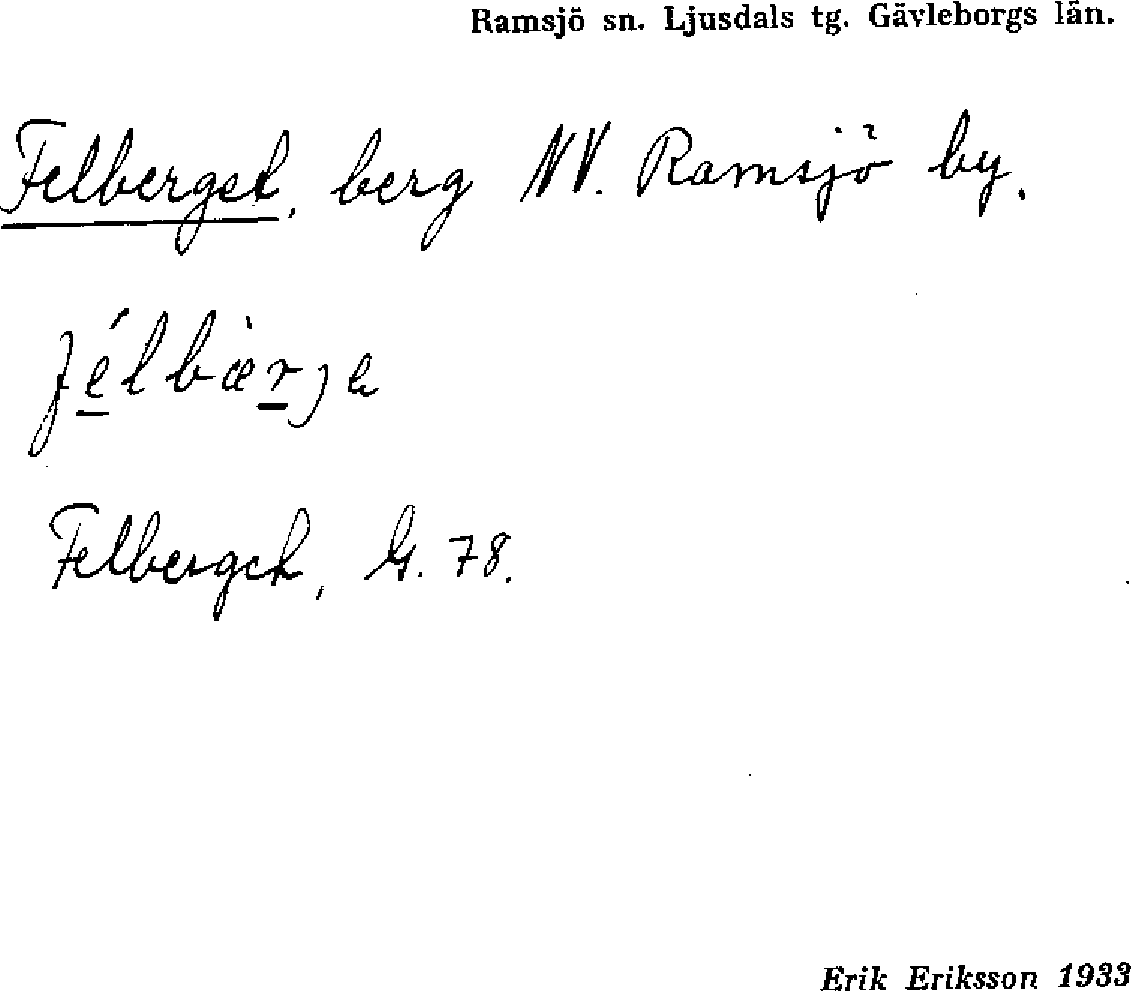 Ramsjö sn. Ljusdals tg. Gävleborgs län.
Felberget, berg NV. Ramsjö by.
félbærje
Felberget, G. 78.
Erik Eriksson 1933